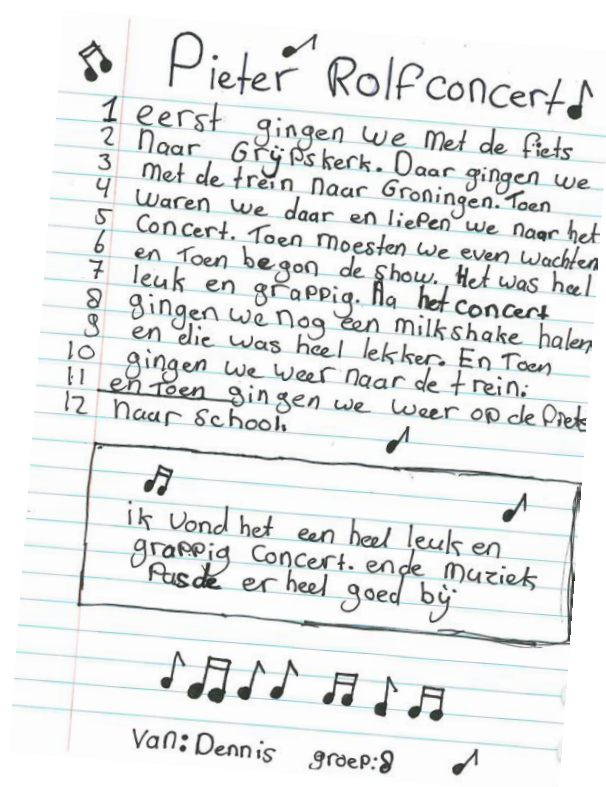 Pieter Rolfconcert
1 eerst gingen we met de fiets
2 naar Grijpskerk. Daar gingen we
3 met de trein naar Groningen. Toen
4 waren we daar en liepen we naar het
5 concert. Toen moesten we even wachten
6 en Toen begon de show. Het was heel
7 leuk en grappig. Na het concert
8 gingen we nog een milkshake halen
9 en die was heel lekker. En Toen
10 gingen we weer naar de trein.
11 en Toen gingen we weer op de fiets
12 naar school.
ik vond het een heel leuk en
grappig concert. en de muziek
Pasde er heel goed bij
Van: Dennis groep: 8